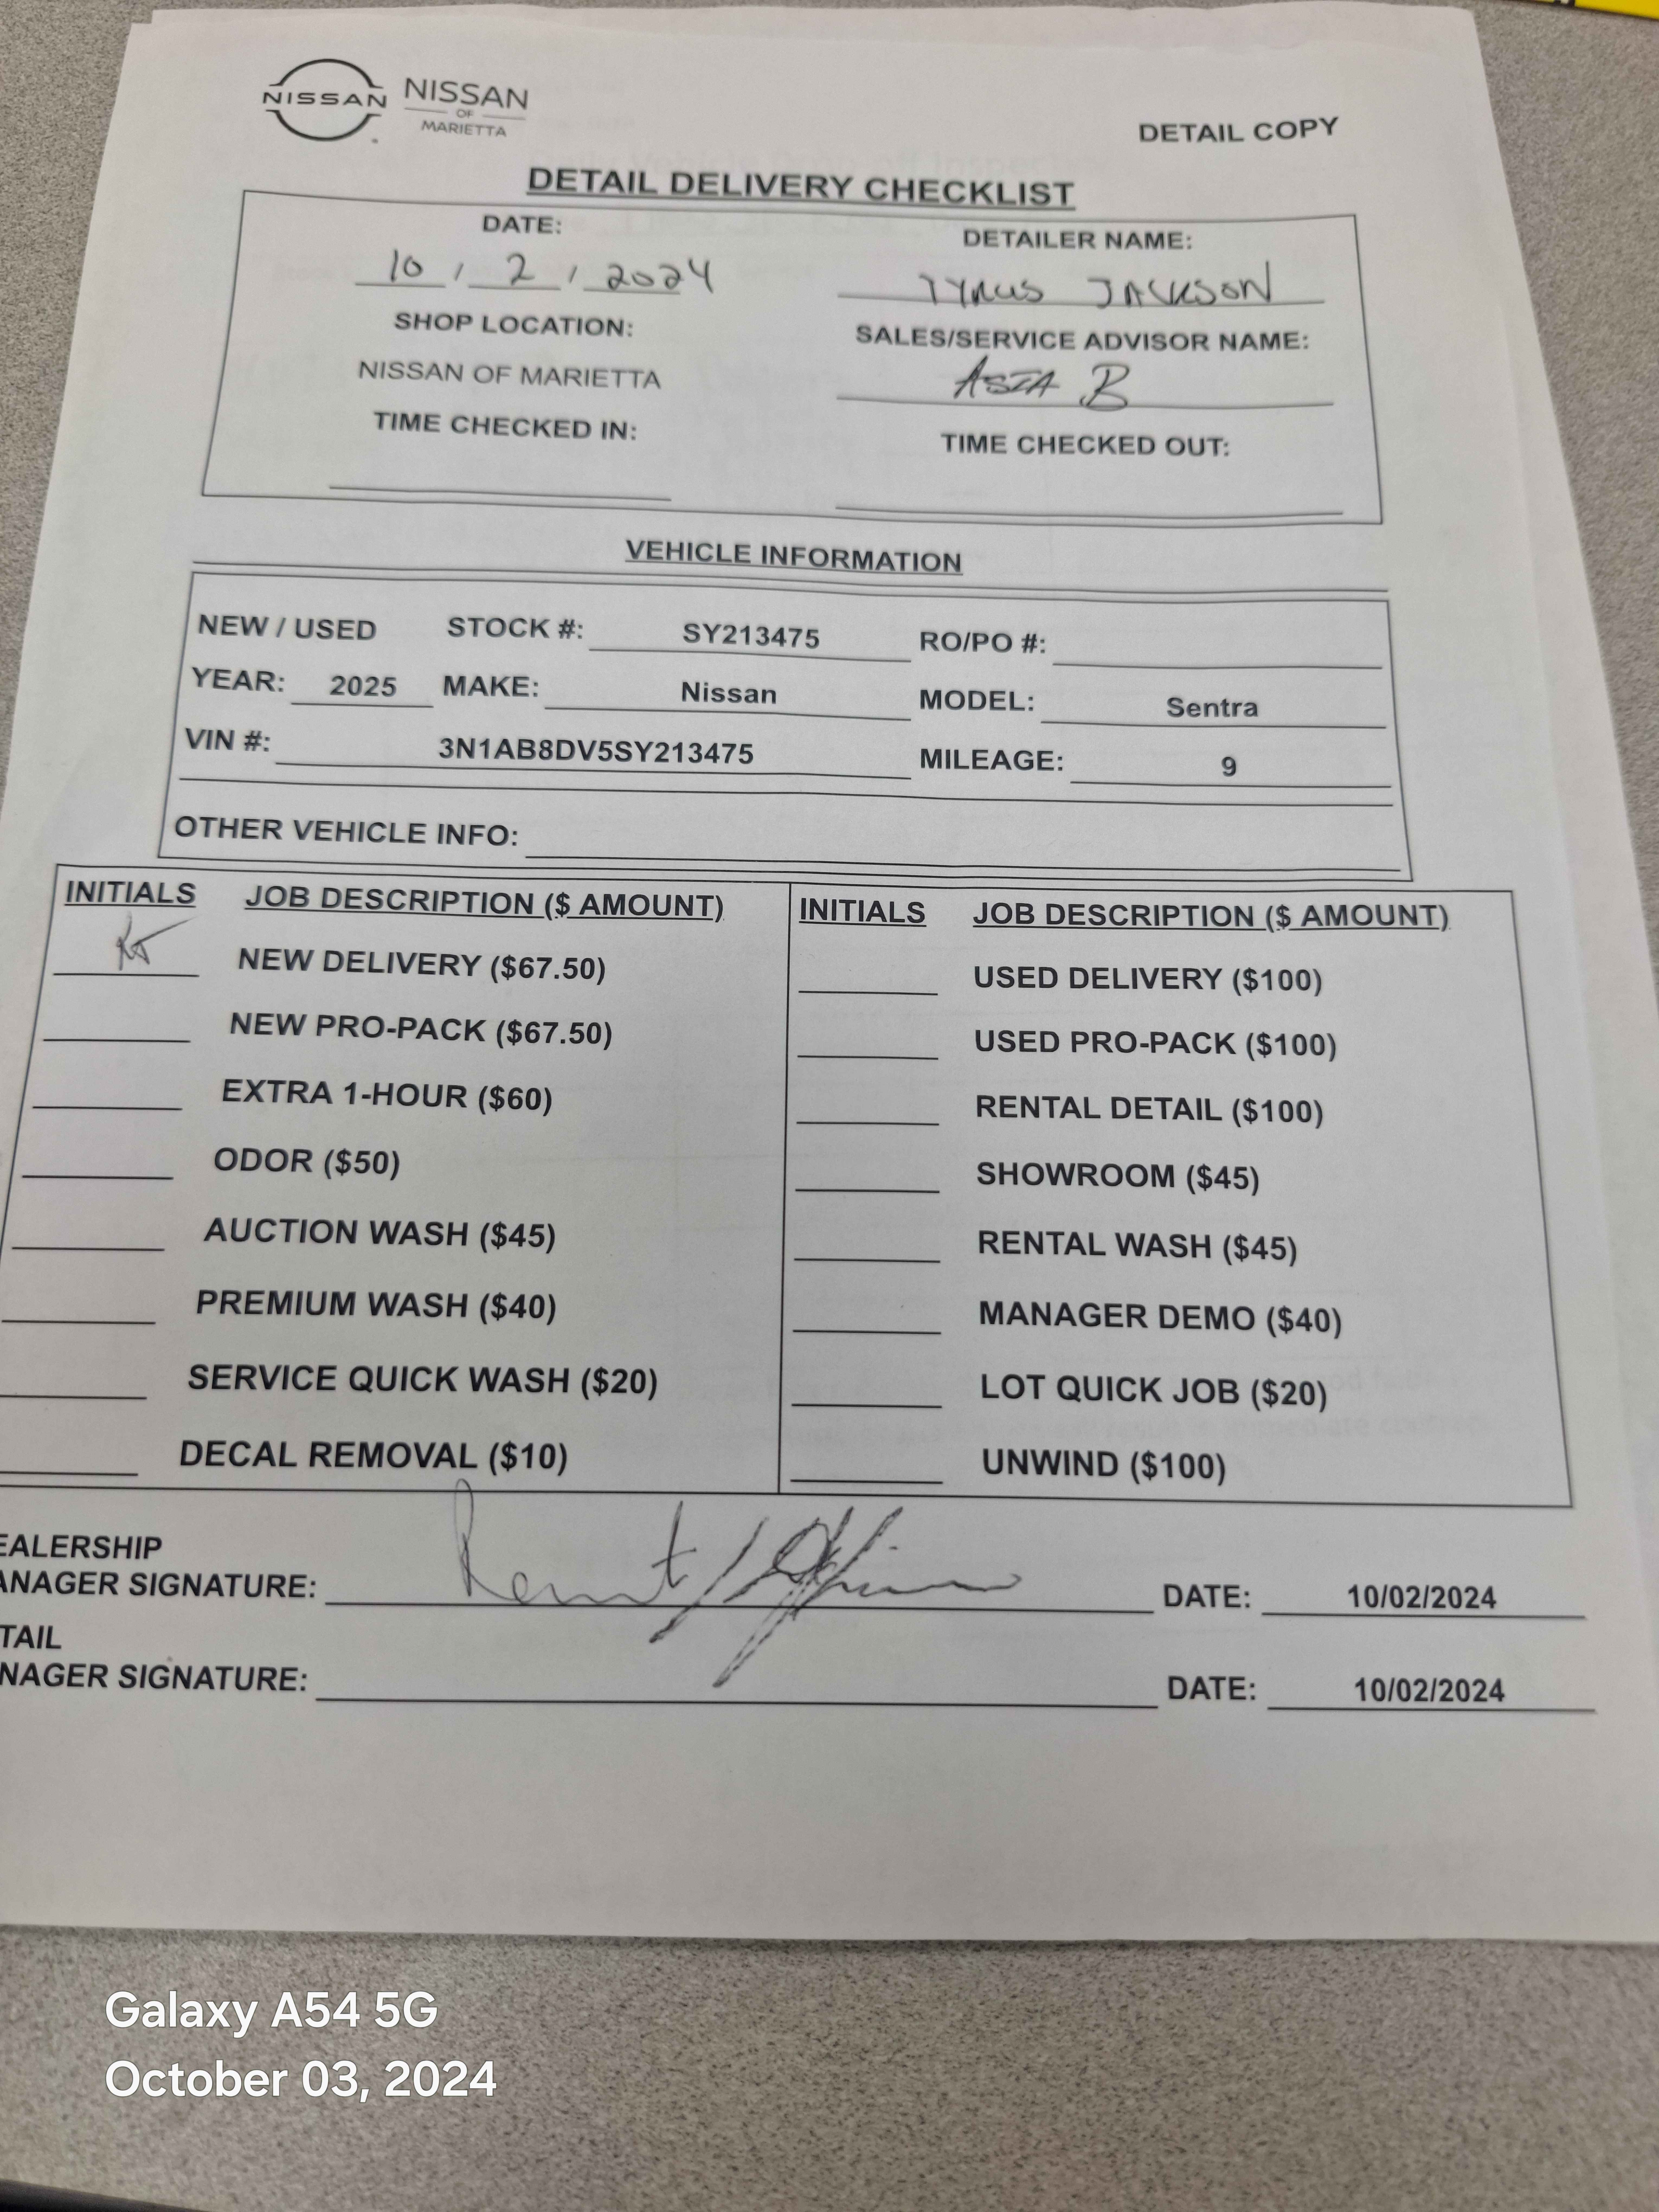 NISSAN NISSAN
OF
MARIETTA
DETAIL COPY
DETAIL DELIVERY CHECKLIST
DATE: DETAILER NAME:
10 / 2 / 2024 TYRUS JACKSON
SHOP LOCATION: SALES/SERVICE ADVISOR NAME:
NISSAN OF MARIETTA ASIA B
TIME CHECKED IN: TIME CHECKED OUT:
VEHICLE INFORMATION
NEW / USED STOCK #: SY213475 RO/PO #:
YEAR: 2025 MAKE: Nissan MODEL: Sentra
VIN #: 3N1AB8DV5SY213475 MILEAGE: 9
OTHER VEHICLE INFO:
INITIALS JOB DESCRIPTION ($ AMOUNT) INITIALS JOB DESCRIPTION ($ AMOUNT)
NEW DELIVERY ($67.50) USED DELIVERY ($100)
NEW PRO-PACK ($67.50) USED PRO-PACK ($100)
EXTRA 1-HOUR ($60) RENTAL DETAIL ($100)
ODOR ($50) SHOWROOM ($45)
AUCTION WASH ($45) RENTAL WASH ($45)
PREMIUM WASH ($40) MANAGER DEMO ($40)
SERVICE QUICK WASH ($20) LOT QUICK JOB ($20)
DECAL REMOVAL ($10) UNWIND ($100)
EALERSHIP
ANAGER SIGNATURE: DATE: 10/02/2024
TAIL
NAGER SIGNATURE: DATE: 10/02/2024
Galaxy A54 5G
October 03, 2024